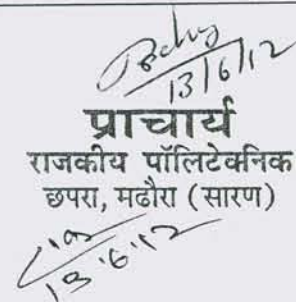 13/6/12
प्राचार्य
राजकीय पॉलिटेक्निक
छपरा, मढौरा (सारण)
13.6.12